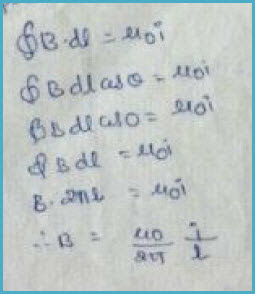 ∮B·dl = μ₀i
∮B dl cos θ = μ₀i
∮B dl cos 0 = μ₀i
∮B dl = μ₀i
B·2πl = μ₀i
∴B = μ₀/2π i/l